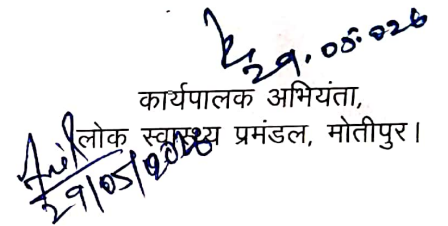 29.05.026
कार्यपालक अभियंता,
लोक स्वास्थ्य प्रमंडल, मोतीपुर।
29/05/2026